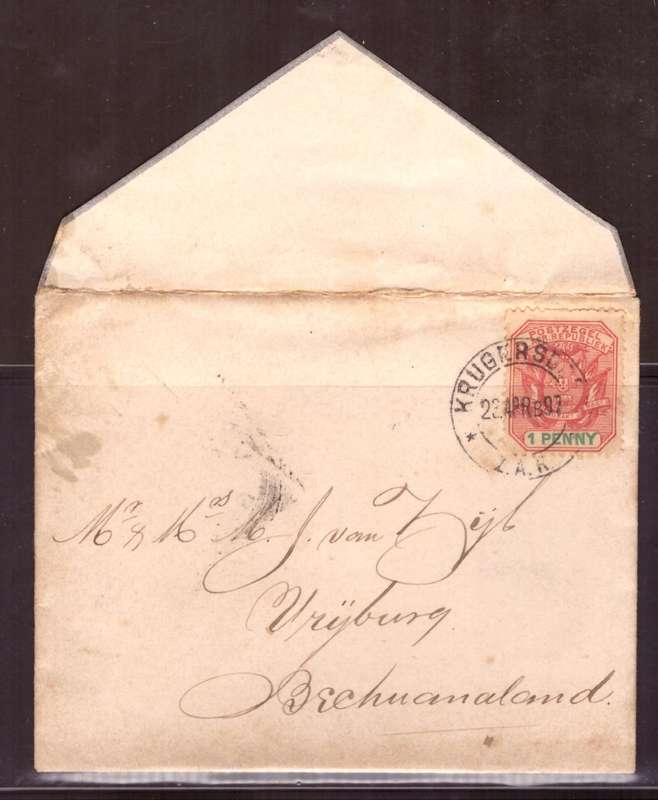 POSTZEGEL
REPUBLIEK
1 PENNY
KRUGERSD
22 APR B 97
Z.A.R.
Mr & Mrs M. J. van Zijl
Vrijburg
Bechuanaland.